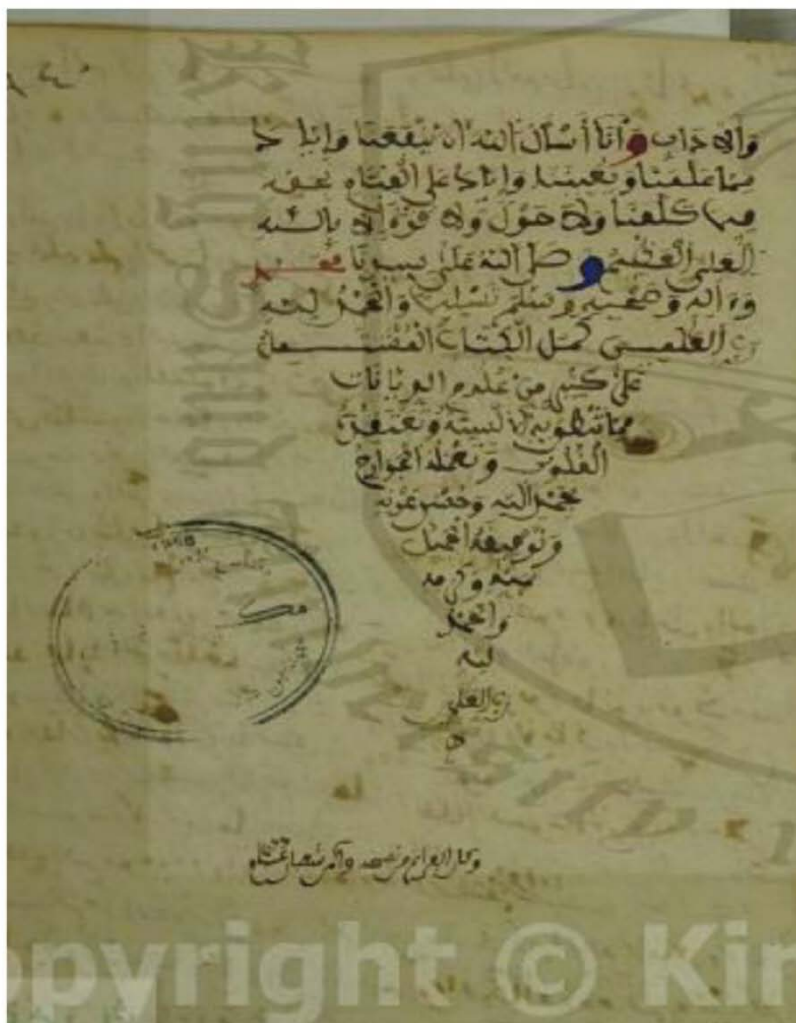 والاداب وأنا أسأل الله أن ينفعنا وإياك
بما علمنا ويعيننا وإياك على القيام بحقه
فيما كلفنا ولا حول ولا قوة إلا بالله
العلي العظيم وصلى الله على سيدنا محمد
وءاله وصحبه وسلم تسليما والحمد لله
رب العلمين كمل الكتاب المشتمل
على كثير من علوم الديانات
مما تنطق به الالسنة وتعتقده
القلوب وتعمله الجوارح
بحمد الله وحسن عونه
وتوفيقه الجميل
بمنه وكرمه
والحمد
لله
رب العلمي
ن
وكان الفراغ من نسخه
Copyright © Kin